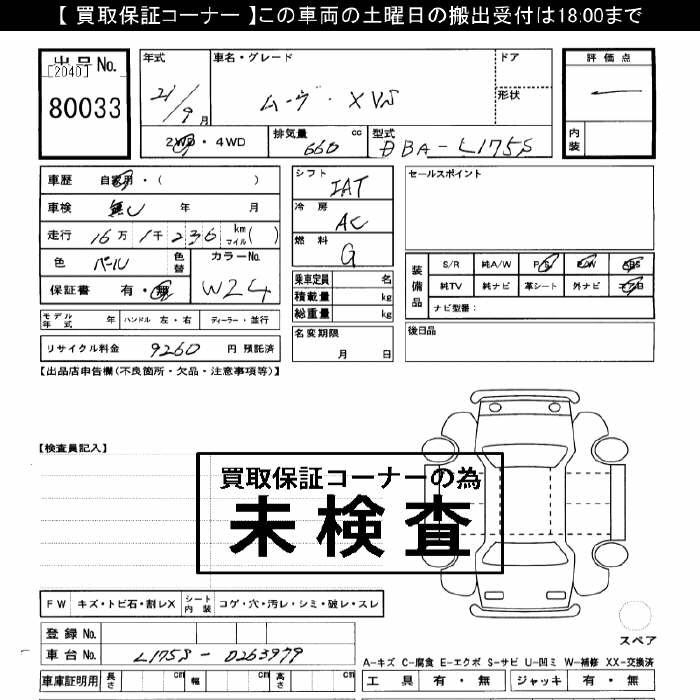 【 買取保証コーナー 】この車両の土曜日の搬出受付は18:00まで
出品No. 年式 車名・グレード ドア 評価点
[2040]
80033 21/9月 ムーヴ・XVS 形状
2WD・4WD 排気量 660 cc 型式 DBA-L175S 内装
車歴 自家用・( ) シフト IAT セールスポイント
車検 無し 年 月 冷房 AC
走行 16万1千236 km マイル( ) 燃料 G
色 パール 色替 カラーNo. W24
保証書 有・無
装備品 S/R 純A/W P/S P/W ABS
純TV 純ナビ 革シート 外ナビ エアB
ナビ型番:
乗車定員 名
積載量 kg
総重量 kg
モデル年式 年 ハンドル 左・右 ディーラー・並行
名変期限 月 日
後日品
リサイクル料金 9260 円 預託済
【出品店申告欄(不良箇所・欠品・注意事項等)】
【検査員記入】
買取保証コーナーの為
未検査
FW キズ・トビ石・割レX シート内装 コゲ・穴・汚レ・シミ・破レ・スレ
登録No.
車台No. L175S-0263979
スペア
A-キズ C-腐食 E-エクボ S-サビ U-凹ミ W-補修 XX-交換済
車庫証明用 長さ cm 幅 cm 高さ cm 工具 有・無 ジャッキ 有・無